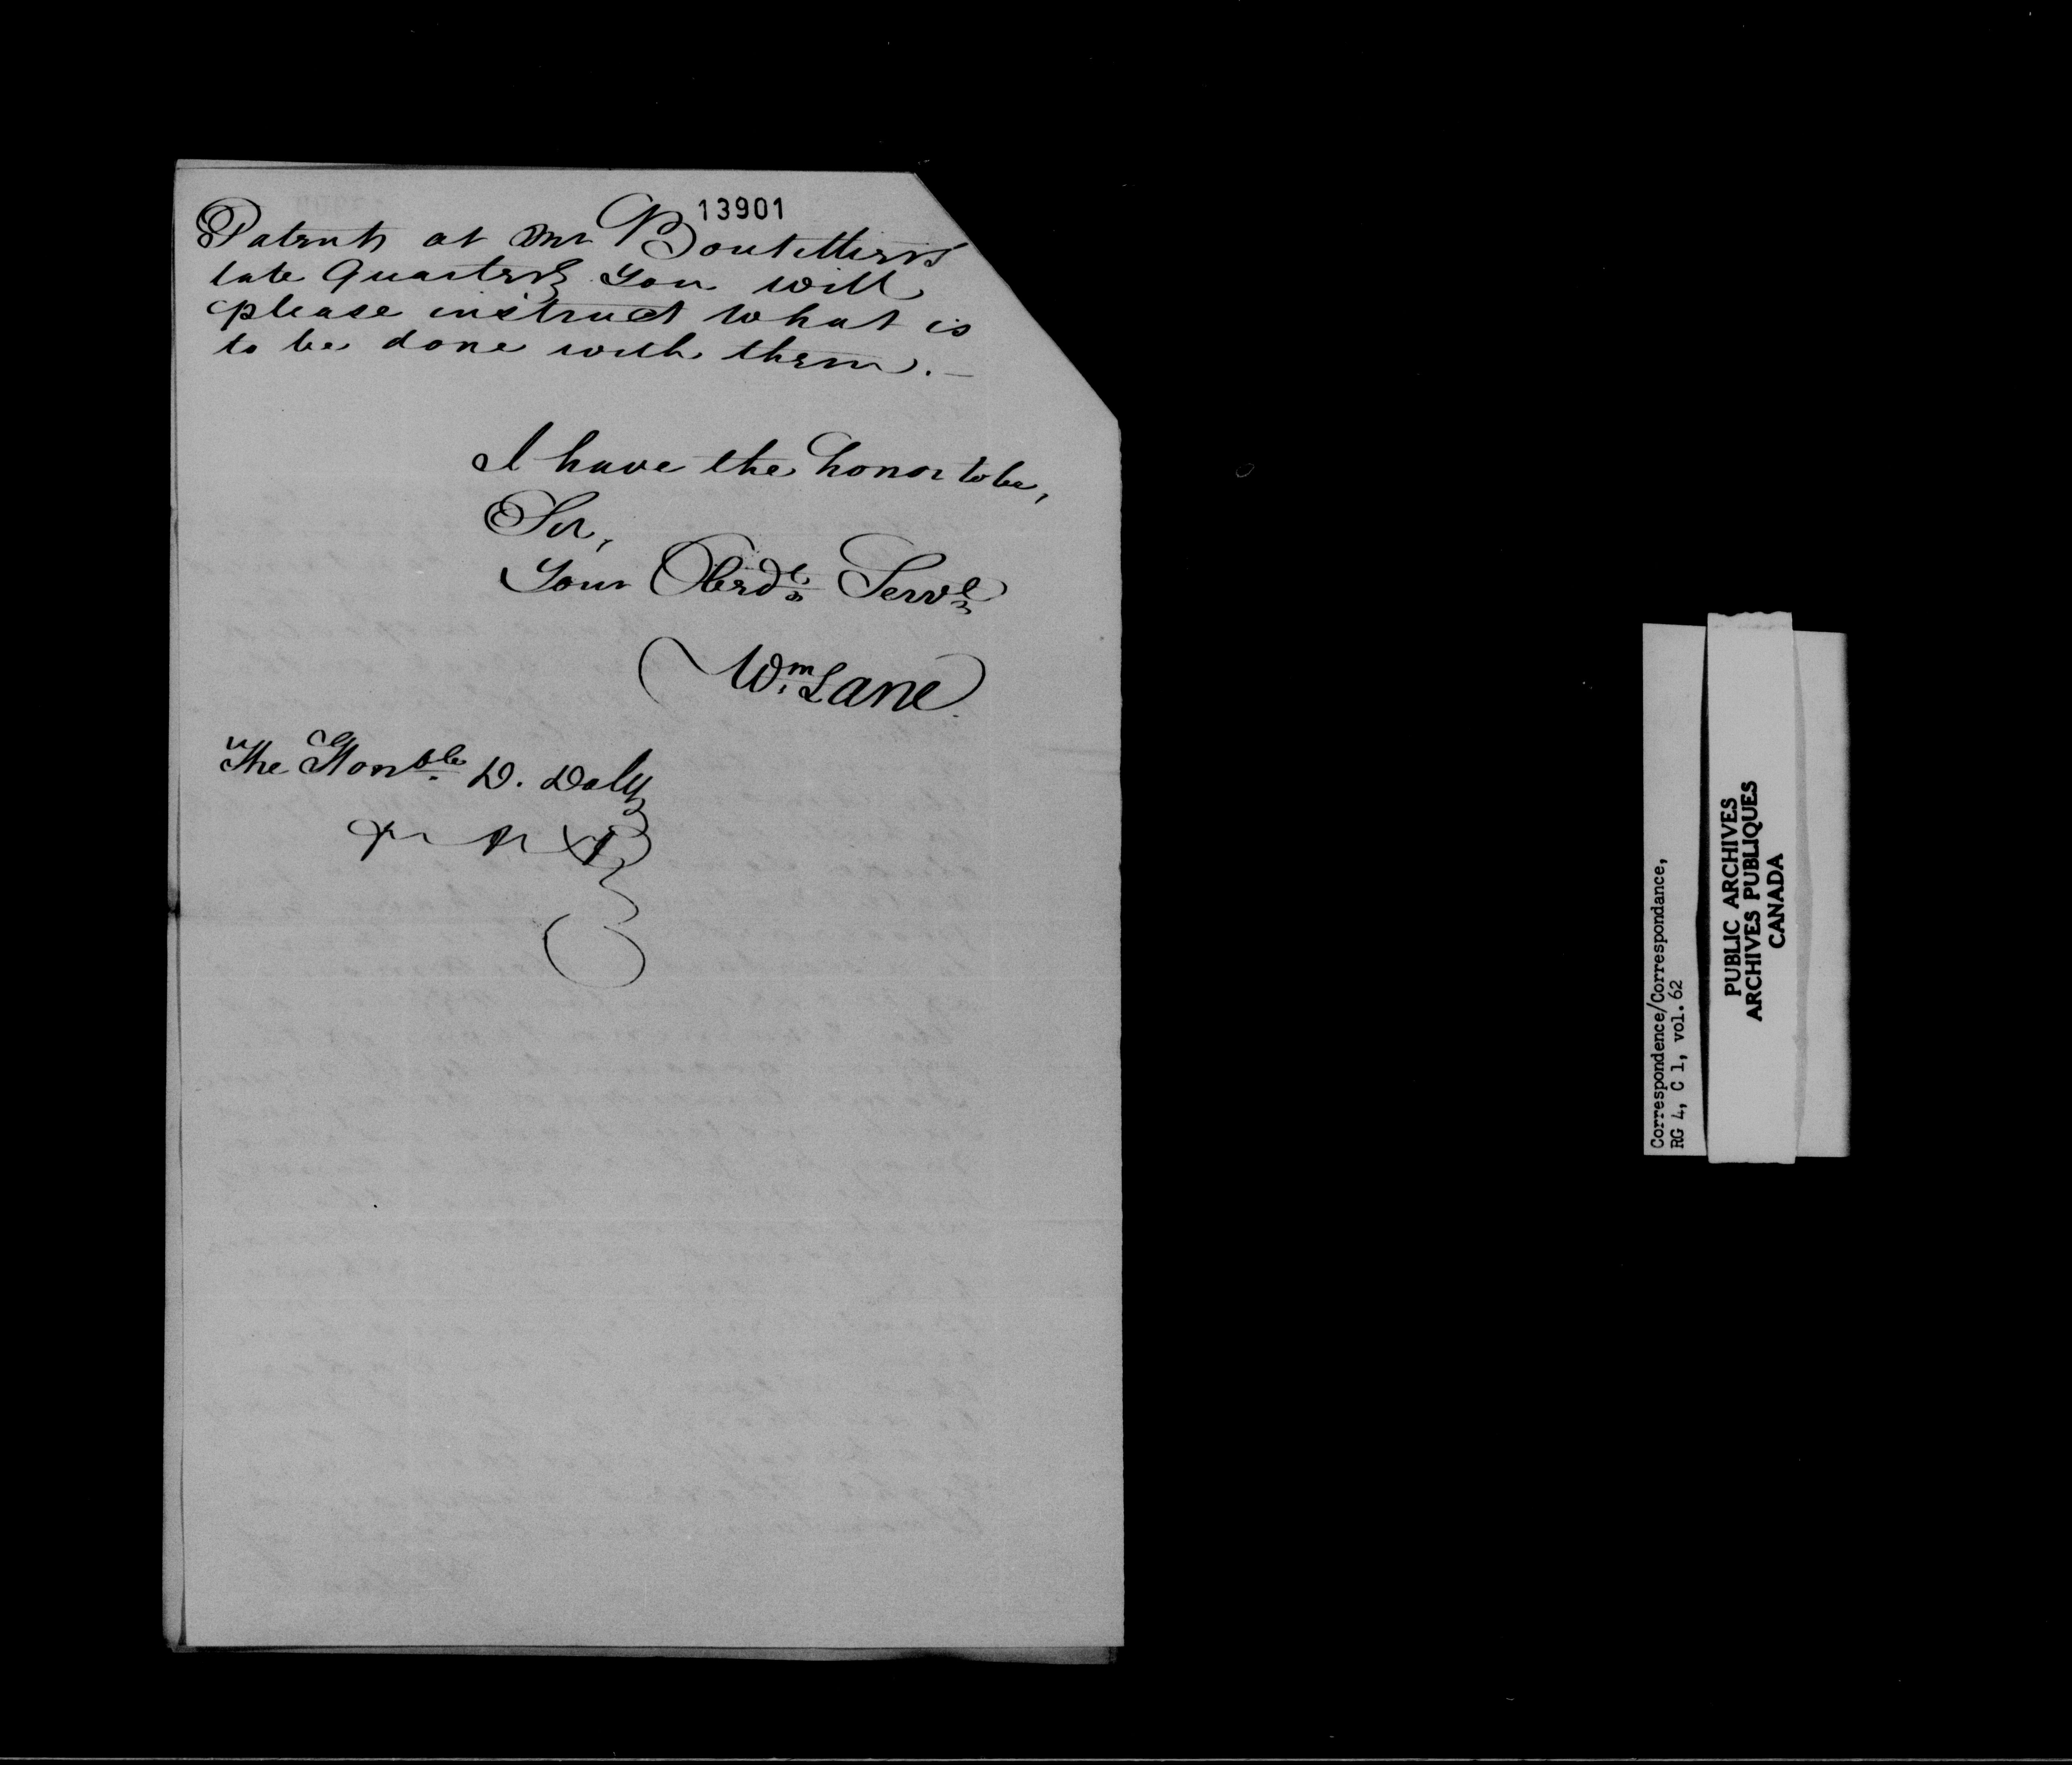 13901
Patents at Mr Boutilliers
late Quarters you will
please instruct what is
to be done with them. —
I have the honor to be,
Sir,
Your Obedt Servt
Wm Lane
The Honble D. Daly
Correspondence/Correspondance,
RG 4, C 1, vol. 62
PUBLIC ARCHIVES
ARCHIVES PUBLIQUES
CANADA